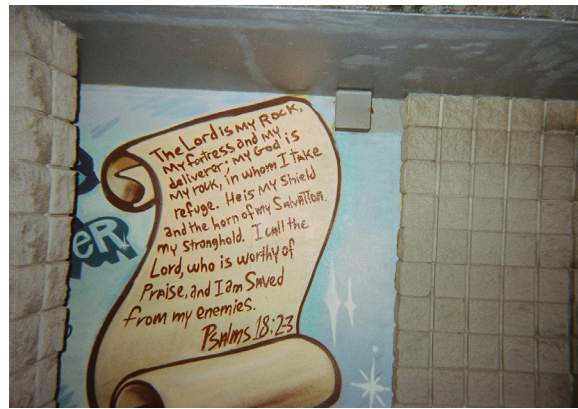 The Lord is my Rock,
my fortress and my
deliverer; my God is
my rock, in whom I take
refuge. He is my Shield
and the horn of my Salvation.
my Stronghold. I call the
Lord, who is worthy of
Praise, and I am Saved
from my enemies.
Psalms 18:23
eR